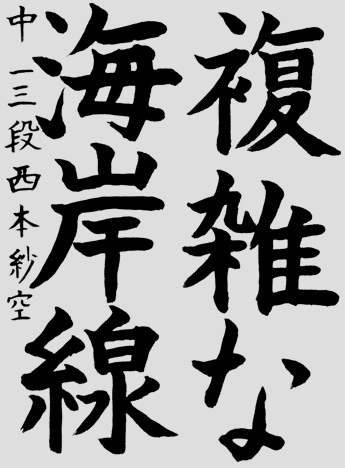 複雑な
海岸線
中一三段西本紗空